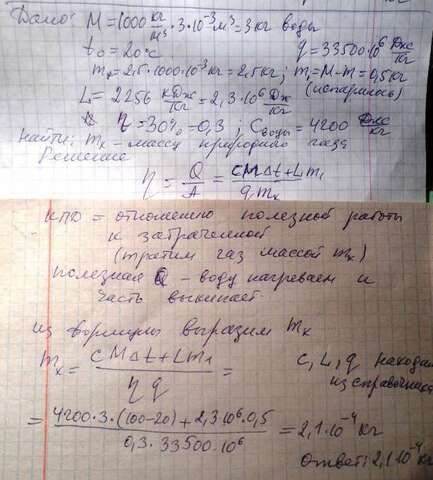 Дано: M = 1000 кг/м³ · 3·10⁻³ м³ = 3 кг воды
t₀ = 20°C q = 33500·10⁶ Дж/кг
m = 2,5·1000·10⁻³ кг = 2,5 кг; m₁ = M-m = 0,5 кг
(испарилась)
L = 2256 кДж/кг = 2,3·10⁶ Дж/кг
η = 30% = 0,3 ; Cводы = 4200 Дж/кг
Найти: mₓ - массу природного газа
Решение
η = Q/A = (cMΔt + Lm₁)/(q mₓ)
КПД = отношению полезной работы
к затраченной
(тратим газ массой mₓ)
полезная Q - воду нагреваем и
часть выкипает
из формулы выразим mₓ
mₓ = (cMΔt + Lm₁)/(η q) = c, L, q находим
из справочника
= (4200·3·(100-20) + 2,3·10⁶·0,5)/(0,3·33500·10⁶) = 2,1·10⁻⁴ кг
Ответ: 2,1·10⁻⁴ кг